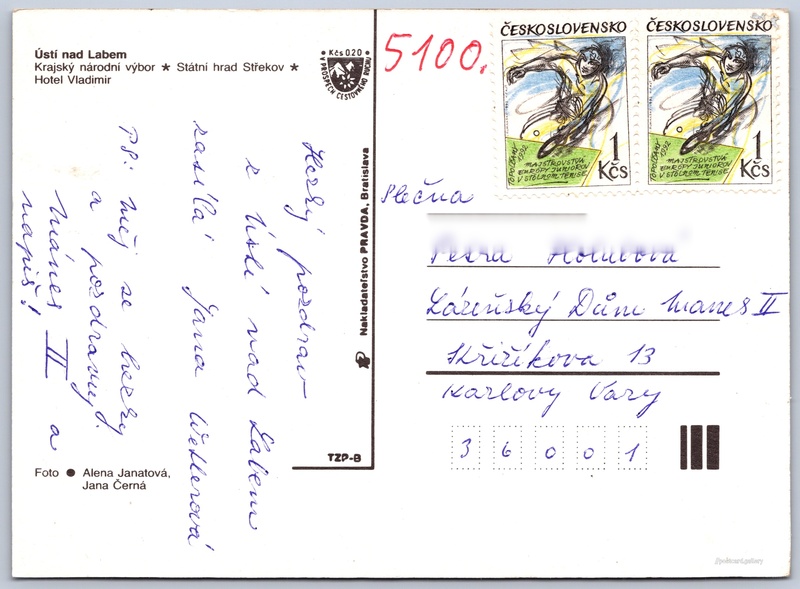 Ústí nad Labem
Krajský národní výbor * Státní hrad Střekov *
Hotel Vladimir
Kčs 0.20
V PROSPĚCH CESTOVNÉHO RUCHU
5100,
ČESKOSLOVENSKO
TOPOĽČANY 1992
MAJSTROVSTVÁ
EURÓPY JUNIOROV
V STOLNOM TENISE
1
Kčs
ČESKOSLOVENSKO
TOPOĽČANY 1992
MAJSTROVSTVÁ
EURÓPY JUNIOROV
V STOLNOM TENISE
1
Kčs
Hezký pozdrav
z Ústí nad Labem
zasílá Jana
P.S: měj se hezky
a pozdravuj.
Mánes II a
napiš!
Nakladatelstvo PRAVDA, Bratislava
TZP-B
Slečna
Petra
Lázeňský Dům Manes II
13
Karlovy Vary
36001
Foto ● Alena Janatová,
Jana Černá